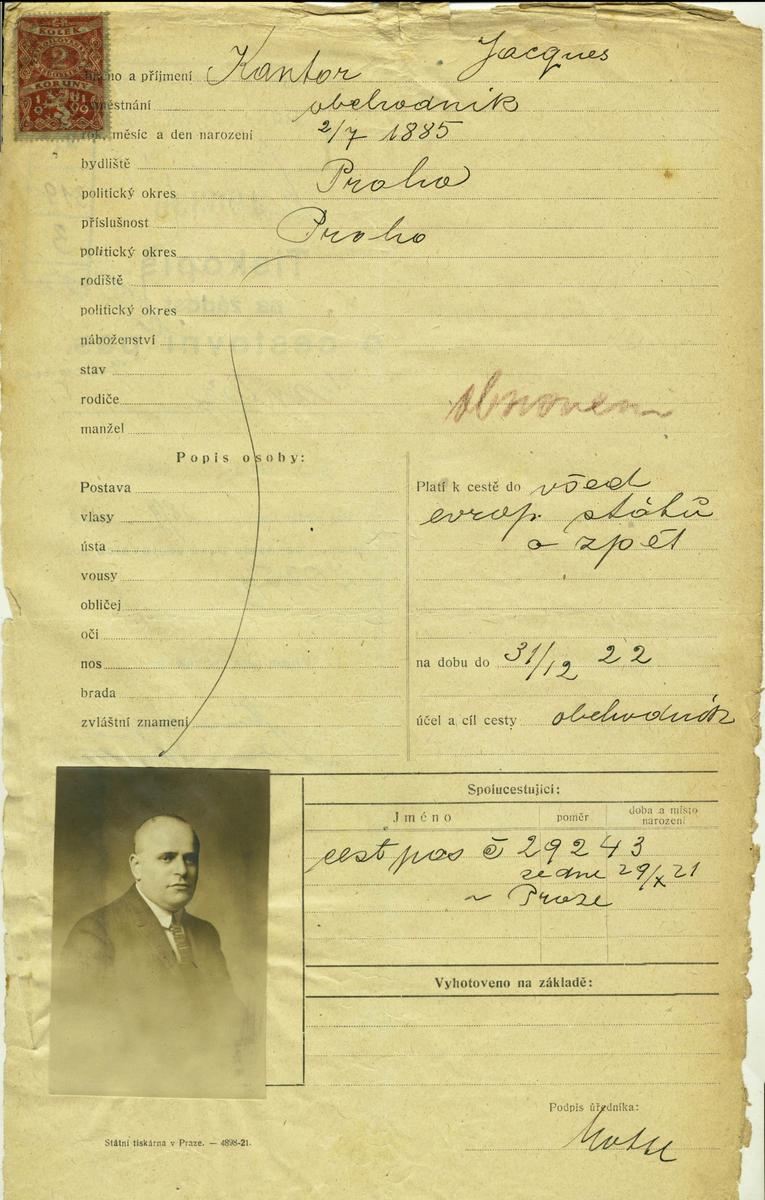 KOLEK
2
KORUNY
1919
Jméno a příjmení Kantor Jacques
zaměstnání obchodník
rok, měsíc a den narození 2/7 1885
bydliště
politický okres Praha
příslušnost
politický okres Praha
rodiště
politický okres
náboženství
stav
rodiče
manžel
obnovení
Popis osoby:
Postava
vlasy
ústa
vousy
obličej
oči
nos
brada
zvláštní znamení
Platí k cestě do všed
evrop. států
a zpět
na dobu do 31/12 22
účel a cíl cesty obchodník
Spolucestující:
Jméno poměr doba a místo
narození
cest pas č 29243
ze dne 29/X 21
v Praze
Vyhotoveno na základě:
Podpis úředníka:
Státní tiskárna v Praze. — 4898-21.